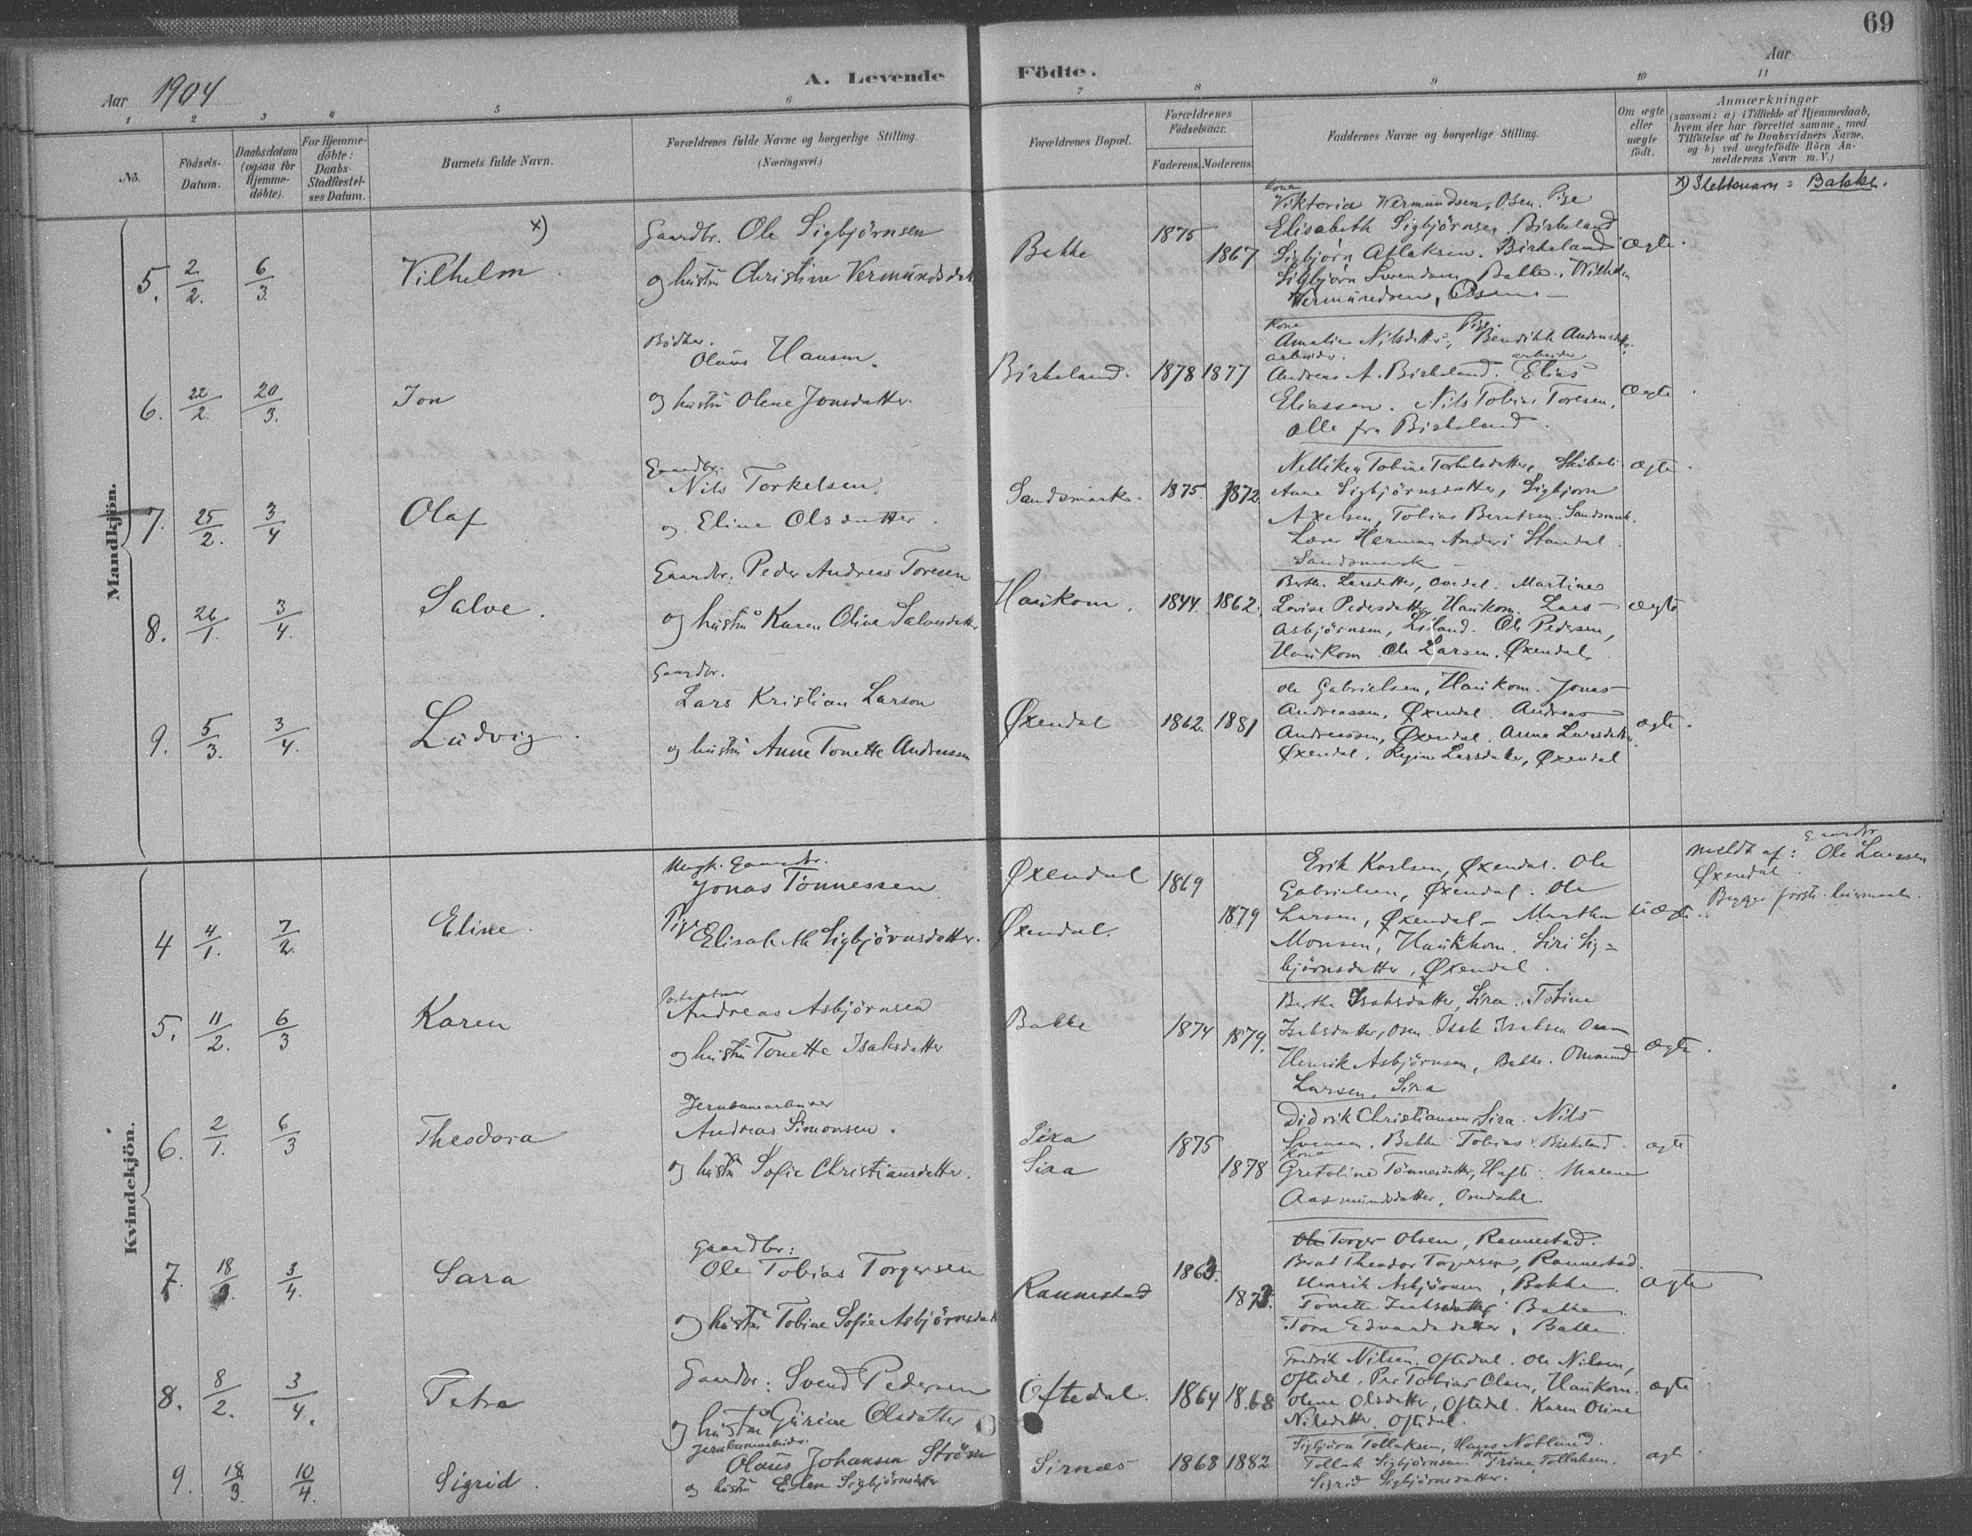 69
Aar 1904
A. Levende Födte.
Aar
1 2 3 4 5 6 7 8 9 10 11
No.
Födsels-Datum.
Daabsdatum (ogsaa for Hjemme-döbte).
For Hjemme-döbte: Daabs-Stadfæstel-ses Datum.
Barnets fulde Navn.
Forældrenes fulde Navne og borgerlige Stilling.
(Næringsvei.)
Forældrenes Bopæl.
Forældrenes Födselsaar.
Faderens. Moderens.
Faddernes Navne og borgerlige Stilling.
Om ægte eller uægte födt.
Anmærkninger
(saasom: a) i Tilfælde af Hjemmedaab,
hvem der har forrettet samme, med
Tilföielse af to Daabsvidners Navne,
og b) ved uægtefödte Börn An-
melderens Navn m. V.)
Mandkjön.
x) Slektsnavn: Bakke.
5. 2/2. 6/3. Vilhelm. x)
Gaardbr. Ole Sigbjørnsen
og hustru Christine Vermundsdatt
Bakke 1875 1867
Kone
Viktoria Vermundsen, Osen. Pige
Elisabeth Sigbjørnsen Birkeland
Sigbjørn Aslaksen. Birkeland
Sigbjørn Svendsen Bakke. Wilhelm
Vermundsen, Osen
Ægte.
6. 22/2. 20/3. Jon
Bødker.
Olaus Hansen.
og hustru Oline Jonsdatter.
Birkeland. 1878 1877
Kone Pige.
Amalie Nilsdatter, Bendikte Andersdtr.
arbeider. arbeider
Andreas A. Birkeland. Elias
Eliassen. Nils Tobias Toresen.
alle fra Birkeland.
Ægte
7. 25/2. 3/4 Olaf
Gaardbr.
Nils Torkelsen.
og Eline Olsdatter.
Sandsmark. 1875. 1872
Nelliken Tobine Torkelsdatter,
Anne Sigbjørnsdatter, Sigbjørn
Axelsen, Tobias Berntsen. Sandsmark.
Lærer Herman Andrs Standal.
Sandsmark
ægte.
8. 26/1. 3/4. Salve.
Gaardbr. Peder Andreas Toresen
og hustru Karen Oline Salvesdatter
Haükom. 1844. 1862.
Berthe Larsdatter, Ovedal. Martine
Lovise Pedersdatter, Haükom. Lars
Asbjørnsen, Liland. Ole Pedersen,
Haükom. Ole Larsen. Øxendal.
ægte
9. 5/3. 3/4. Ludvig.
Gaardbr.
Lars Kristian Larson
og hustru Anne Tonette Andreassen
Øxendal 1862. 1881
Ole Gabrielsen, Haükom. Jonas
Andreassen, Øxendal. Andreas
Andreassen, Øxendal. Anna Larsdatter.
Øxendal. Regine Larsdatter, Øxendal
ægte.
Kvindekjön.
4 4/1. 7/2. Eline.
Ungk. Gaardbr.
Jonas Tönnessen
Pige Elisabeth Sigbjörnsdatter.
Øxendal 1869
Øxendal. 1879
Erik Karlsen, Øxendal. Ole
Gabrielsen, Øxendal. Ole
Larsen, Øxendal - Marthe
Monsen, Haükhom. Siri Sig=
bjørnsdatter, Øxendal.
Uægte.
meldt af: Gaardbr Ole Larssen
Øxendal
Begges förste leiermaal.
5. 11/2. 6/3 Karen
Andreas Asbjörnsen
og hustru Tonette Isaksdatter
Bakke 1874 1879.
Berthe Isaksdatter, Sira. Tobine
Isaksdatter, Osen. Isak Isaksen Osen
Henrik Asbjørnsen, Bakke. Omund
Larsen, Sira
Ægte.
6. 2/1. 6/3 Theodora
Jernbanearbeider
Andreas Simonsen.
og hustru Sofie Christiansdatter.
Sira 1875
Sira 1878
Didrik Christiansen, Sira. Nils
Svensen. Bakke Tobias Birkeland.
Kone
Gretoline Tönnesdatter, Hafte. Malene
Aasmundsdatter, Omdahl.
ægte
7. 18/ 3/4. Sara
Gaardbr:
Ole Tobias Torgersen
og hustru Tobine Sofie Asbjørnsdatt
Rannestad 1863. 1873.
Torger Olsen, Rannestad.
Bernt Theodor Torgersen, Rannestad.
Henrik Asbjørnsen, Bakke.
Tonette Isaksdatter Bakke.
Tora Edvardsdatter, Bakke.
Ægte
8. 8/2. 3/4. Petra
Gaardbr: Svend Pedersen
og hustru Gurine Olsdatter
Oftedal. 1864 1868
Fredrik Nilsen. Oftedal. Ole Nilsen,
Oftedal, Per Tobias Olsen, Haükom.
Olene Olsdatter, Oftedal. Karen Oline
Nilsdatter. Oftedal.
ægte
9. 18/3. 10/4. Sigrid.
Jernbanearbeider.
Olaus Johansen Strösen
og hustru Elen Sigbjörnsdatter
Sirnæs 1868 1882
Sigbjörn Tollaksen, Hans Nolland.
Tollak Sigbjörnsen. Kone Trine Tollaksen.
Sigrid Sigbjörnsdatter.
ægt